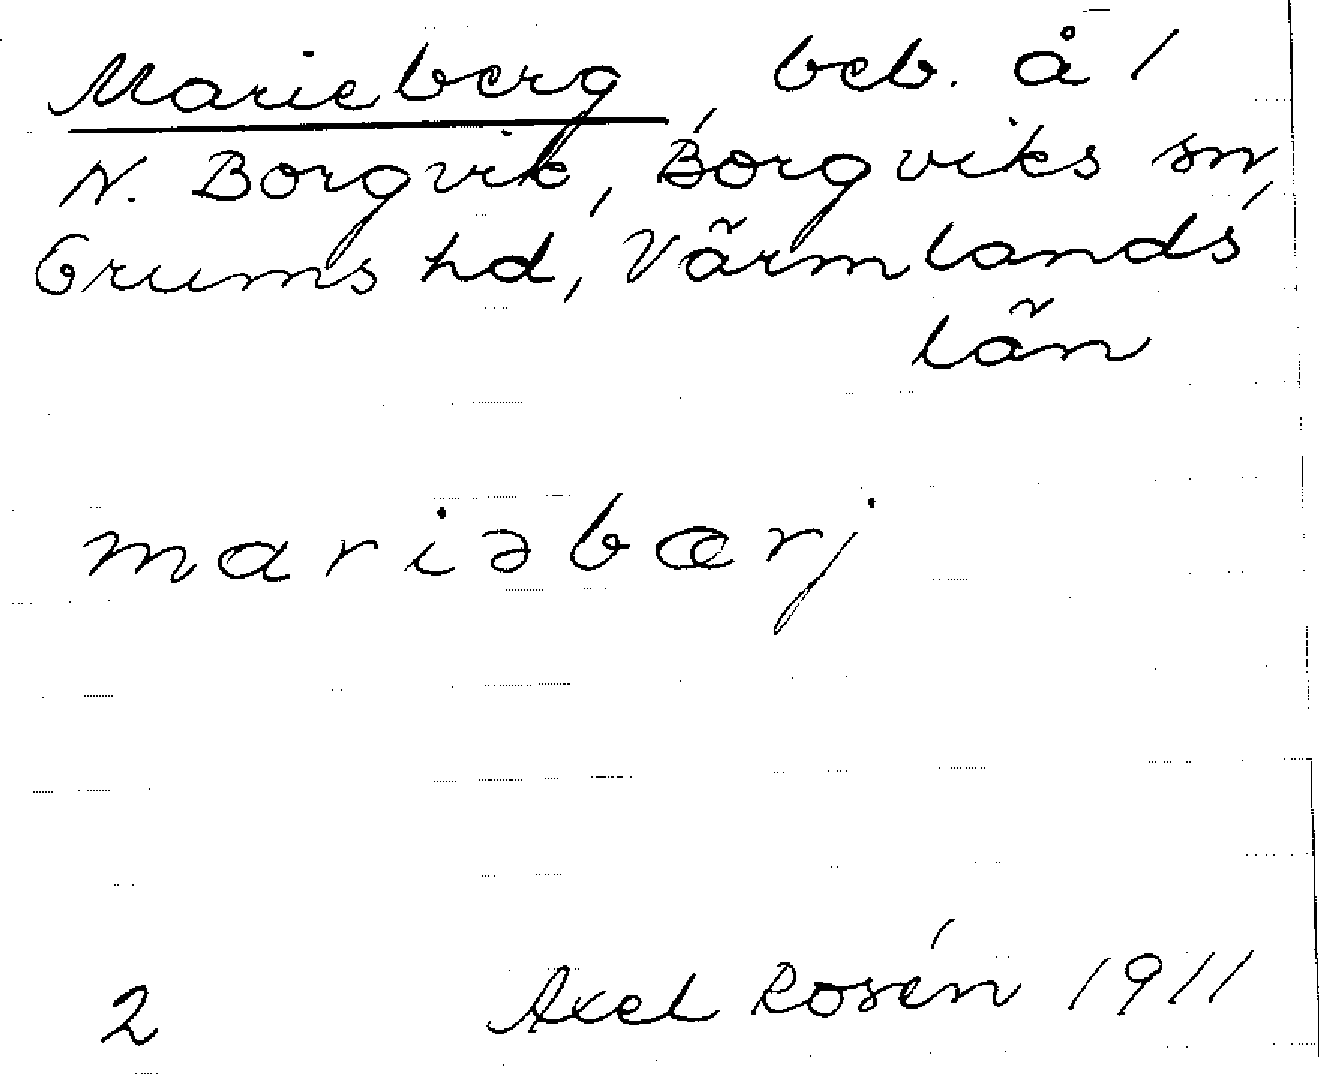 Marieberg, beb. å 1
N. Borgvik, Borgviks sn,
Grums hd, Värmlands
län
mariəbærj
2 Axel Rosén 1911